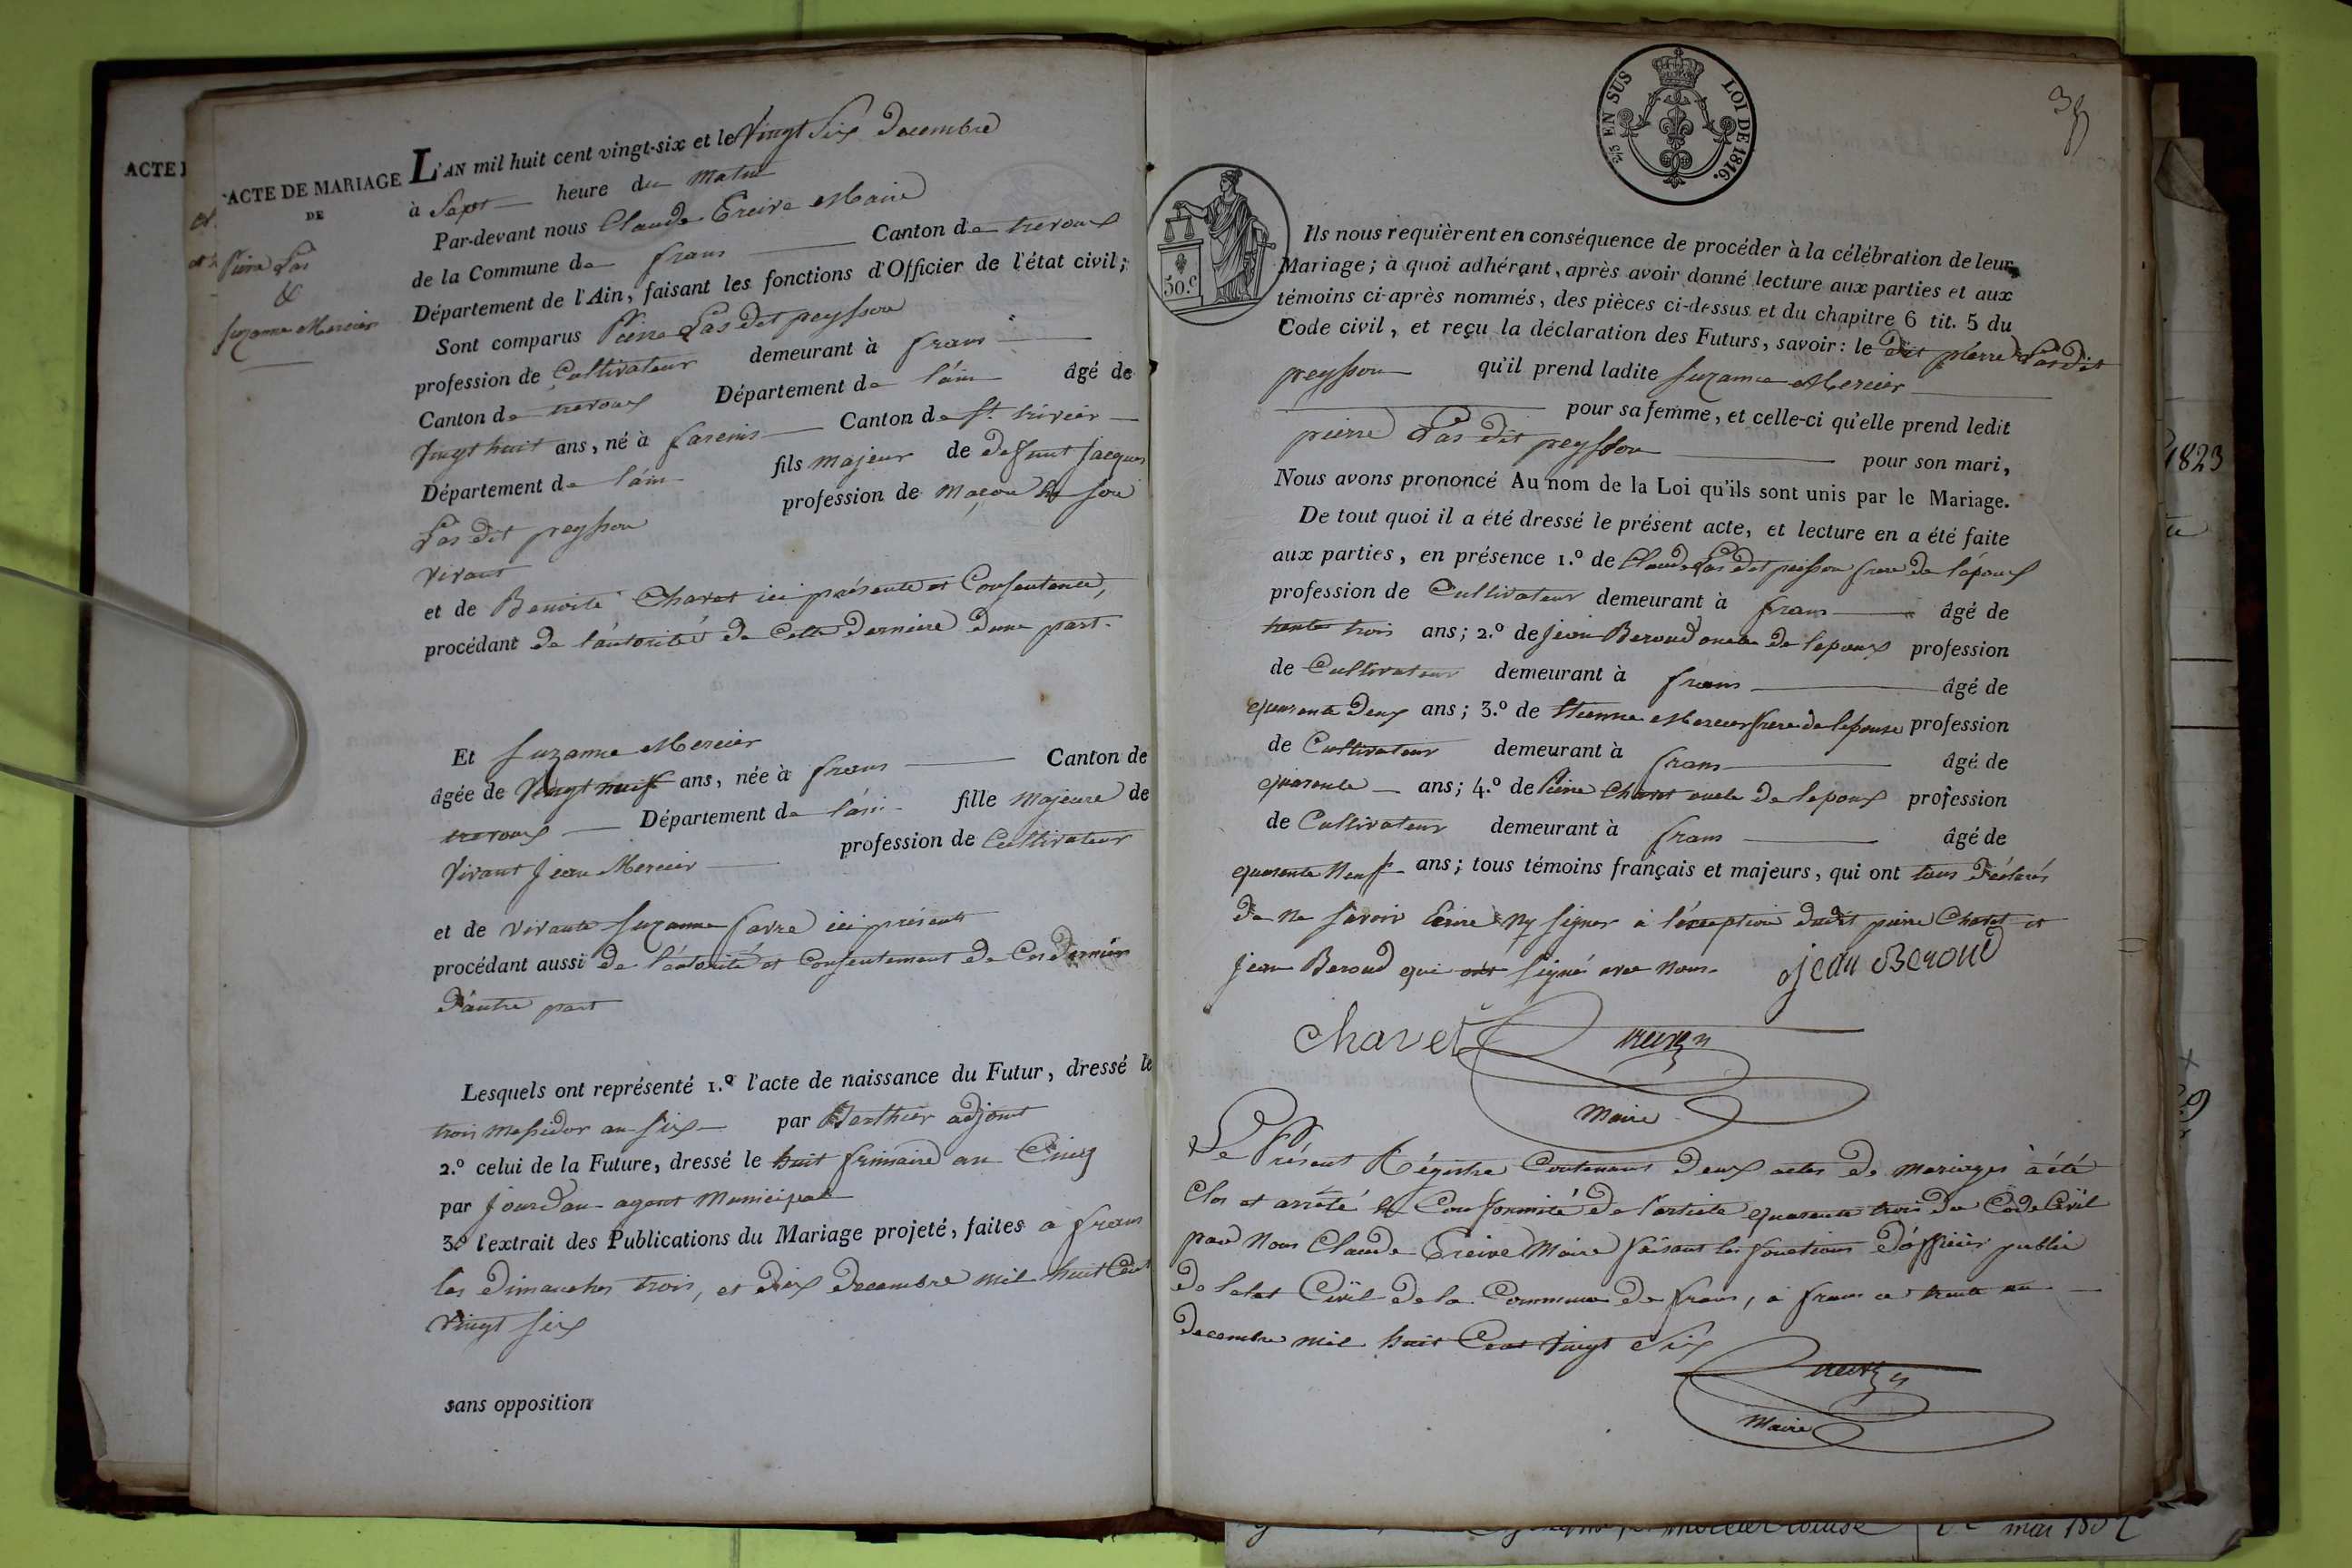 ACTE
ACTE DE MARIAGE
DE
Pierre Las
&
Suzanne Mercier
L'AN mil huit cent vingt-six et le Vingt Six decembre
à Sept heure du matin
Par-devant nous Claude Treive Maire
de la Commune de frans Canton de trevoux
Département de l'Ain, faisant les fonctions d'Officier de l'état civil;
Sont comparus Pierre Las dit peysson
profession de Cultivateur demeurant à frans
Canton de trevoux Département de l'ain âgé de
Vingt huit ans, né à fareins Canton de St. trivier
Département de l'ain fils majeur de defunt Jacques
Las dit peysson profession de maçon de son
vivant
et de Benoite Chavet ici présente et Consentente,
procédant de l'autorité de Cette derniere dune part.
Et Suzanne Mercier
âgée de Vingt neuf ans, née à frans Canton de
trevoux Département de l'ain fille majeure de
Vivant Jean Mercier profession de Cultivateur
et de vivante Suzanne favre ici présents
procédant aussi de l'autorité et Consentement de Ces derniers
d'autre part
Lesquels ont représenté 1.º l'acte de naissance du Futur, dressé le
trois Messidor an Six par Berthier adjoint
2.º celui de la Future, dressé le huit frimaire an Cinq
par Jourdan agent Municipal
3.º l'extrait des Publications du Mariage projeté, faites à frans
les dimanches trois, et dix decembre mil huit Cent
Vingt Six
sans opposition
2/5 EN SUS LOI DE 1816.
50.c
Ils nous requièrent en conséquence de procéder à la célébration de leur
Mariage; à quoi adhérant, après avoir donné lecture aux parties et aux
témoins ci-après nommés, des pièces ci-dessus et du chapitre 6 tit. 5 du
Code civil, et reçu la déclaration des Futurs, savoir: le dit pierre Las dit
peysson qu'il prend ladite Suzanne Mercier
pour sa femme, et celle-ci qu'elle prend ledit
pierre Las dit peysson pour son mari,
Nous avons prononcé Au nom de la Loi qu'ils sont unis par le Mariage.
De tout quoi il a été dressé le présent acte, et lecture en a été faite
aux parties, en présence 1.º de Claude Las dit peisson frere de l'époux
profession de Cultivateur demeurant à frans âgé de
trente trois ans; 2.º de Jean Beroud oncle de lepoux profession
de Cultivateur demeurant à frans âgé de
quarante deux ans; 3.º de Etienne Mercier frere de lepouse profession
de Cultivateur demeurant à frans âgé de
quarante ans; 4.º de Pierre Chavet oncle de lepoux profession
de Cultivateur demeurant à frans âgé de
quarante Neuf ans; tous témoins français et majeurs, qui ont tous déclarés
de ne savoir Ecrire ny signer à l'éxception dudit pierre Chavet et
Jean Beroud qui ont signé avec nous. jean Beroud
chavet Treive
Maire
Le Présent Régistre Contenant deux actes de mariages à été
Clos et arrêté en Conformité de l'article quarante trois du Code Civil
par Nous Claude Treive Maire faisant les fonctions d'officier public
de letat Civil de la Commune de frans, à frans ce trente un
decembre mil huit Cent Vingt Six
Treive
Maire
1823
mai